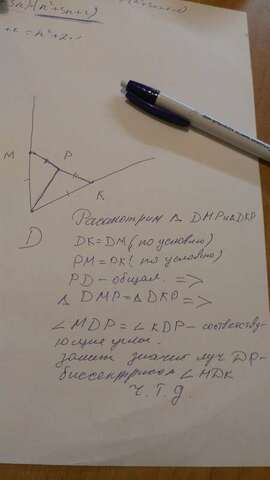 M
P
K
D
Рассмотрим Δ DMP и ΔDKP
DK=DM (по условию)
PM=PK (по условию)
PD - общая. =>
Δ DMP = ΔDKP =>
∠MDP = ∠KDP - соответству-
ющие углы.
значит луч DP-
биссектриса ∠MDK
Ч.Т.Д.